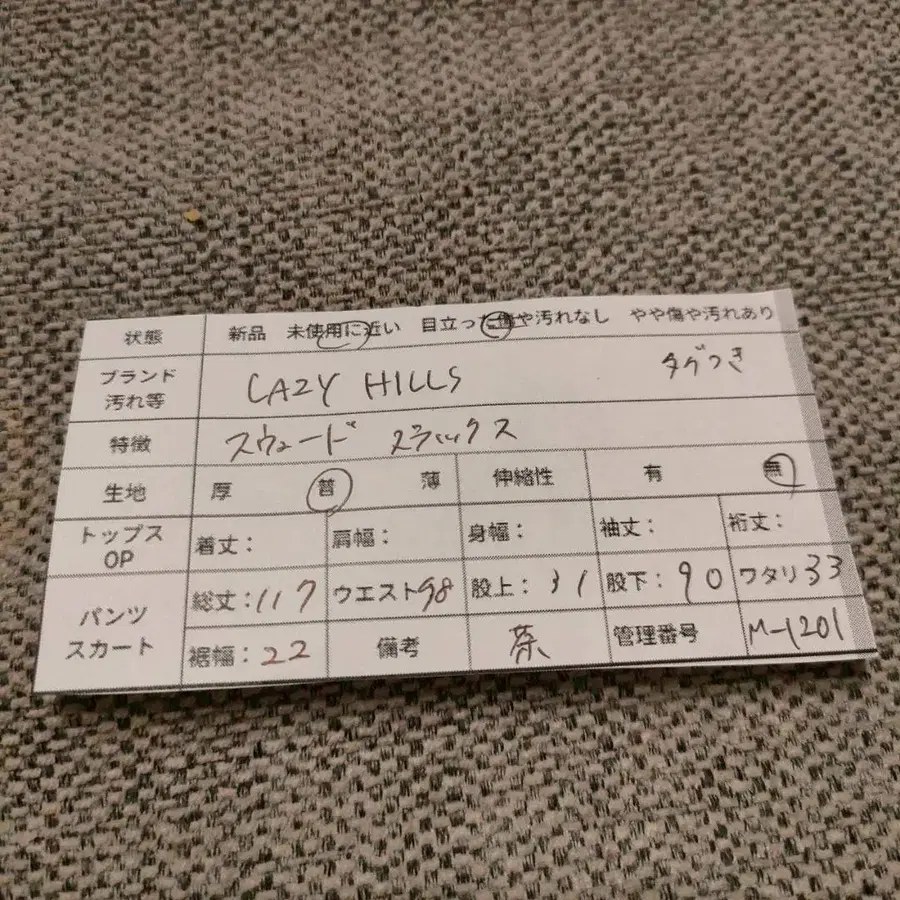 状態 新品 未使用に近い 目立った傷や汚れなし やや傷や汚れあり
ブランド 汚れ等 LAZY HILLS タグつき
特徴 スウェード スラックス
生地 厚 普 薄 伸縮性 有 無
トップス OP 着丈: 肩幅: 身幅: 袖丈: 裄丈:
パンツ スカート 総丈:117 ウエスト98 股上:31 股下:90 ワタリ33
裾幅:22 備考 茶 管理番号 M-1201